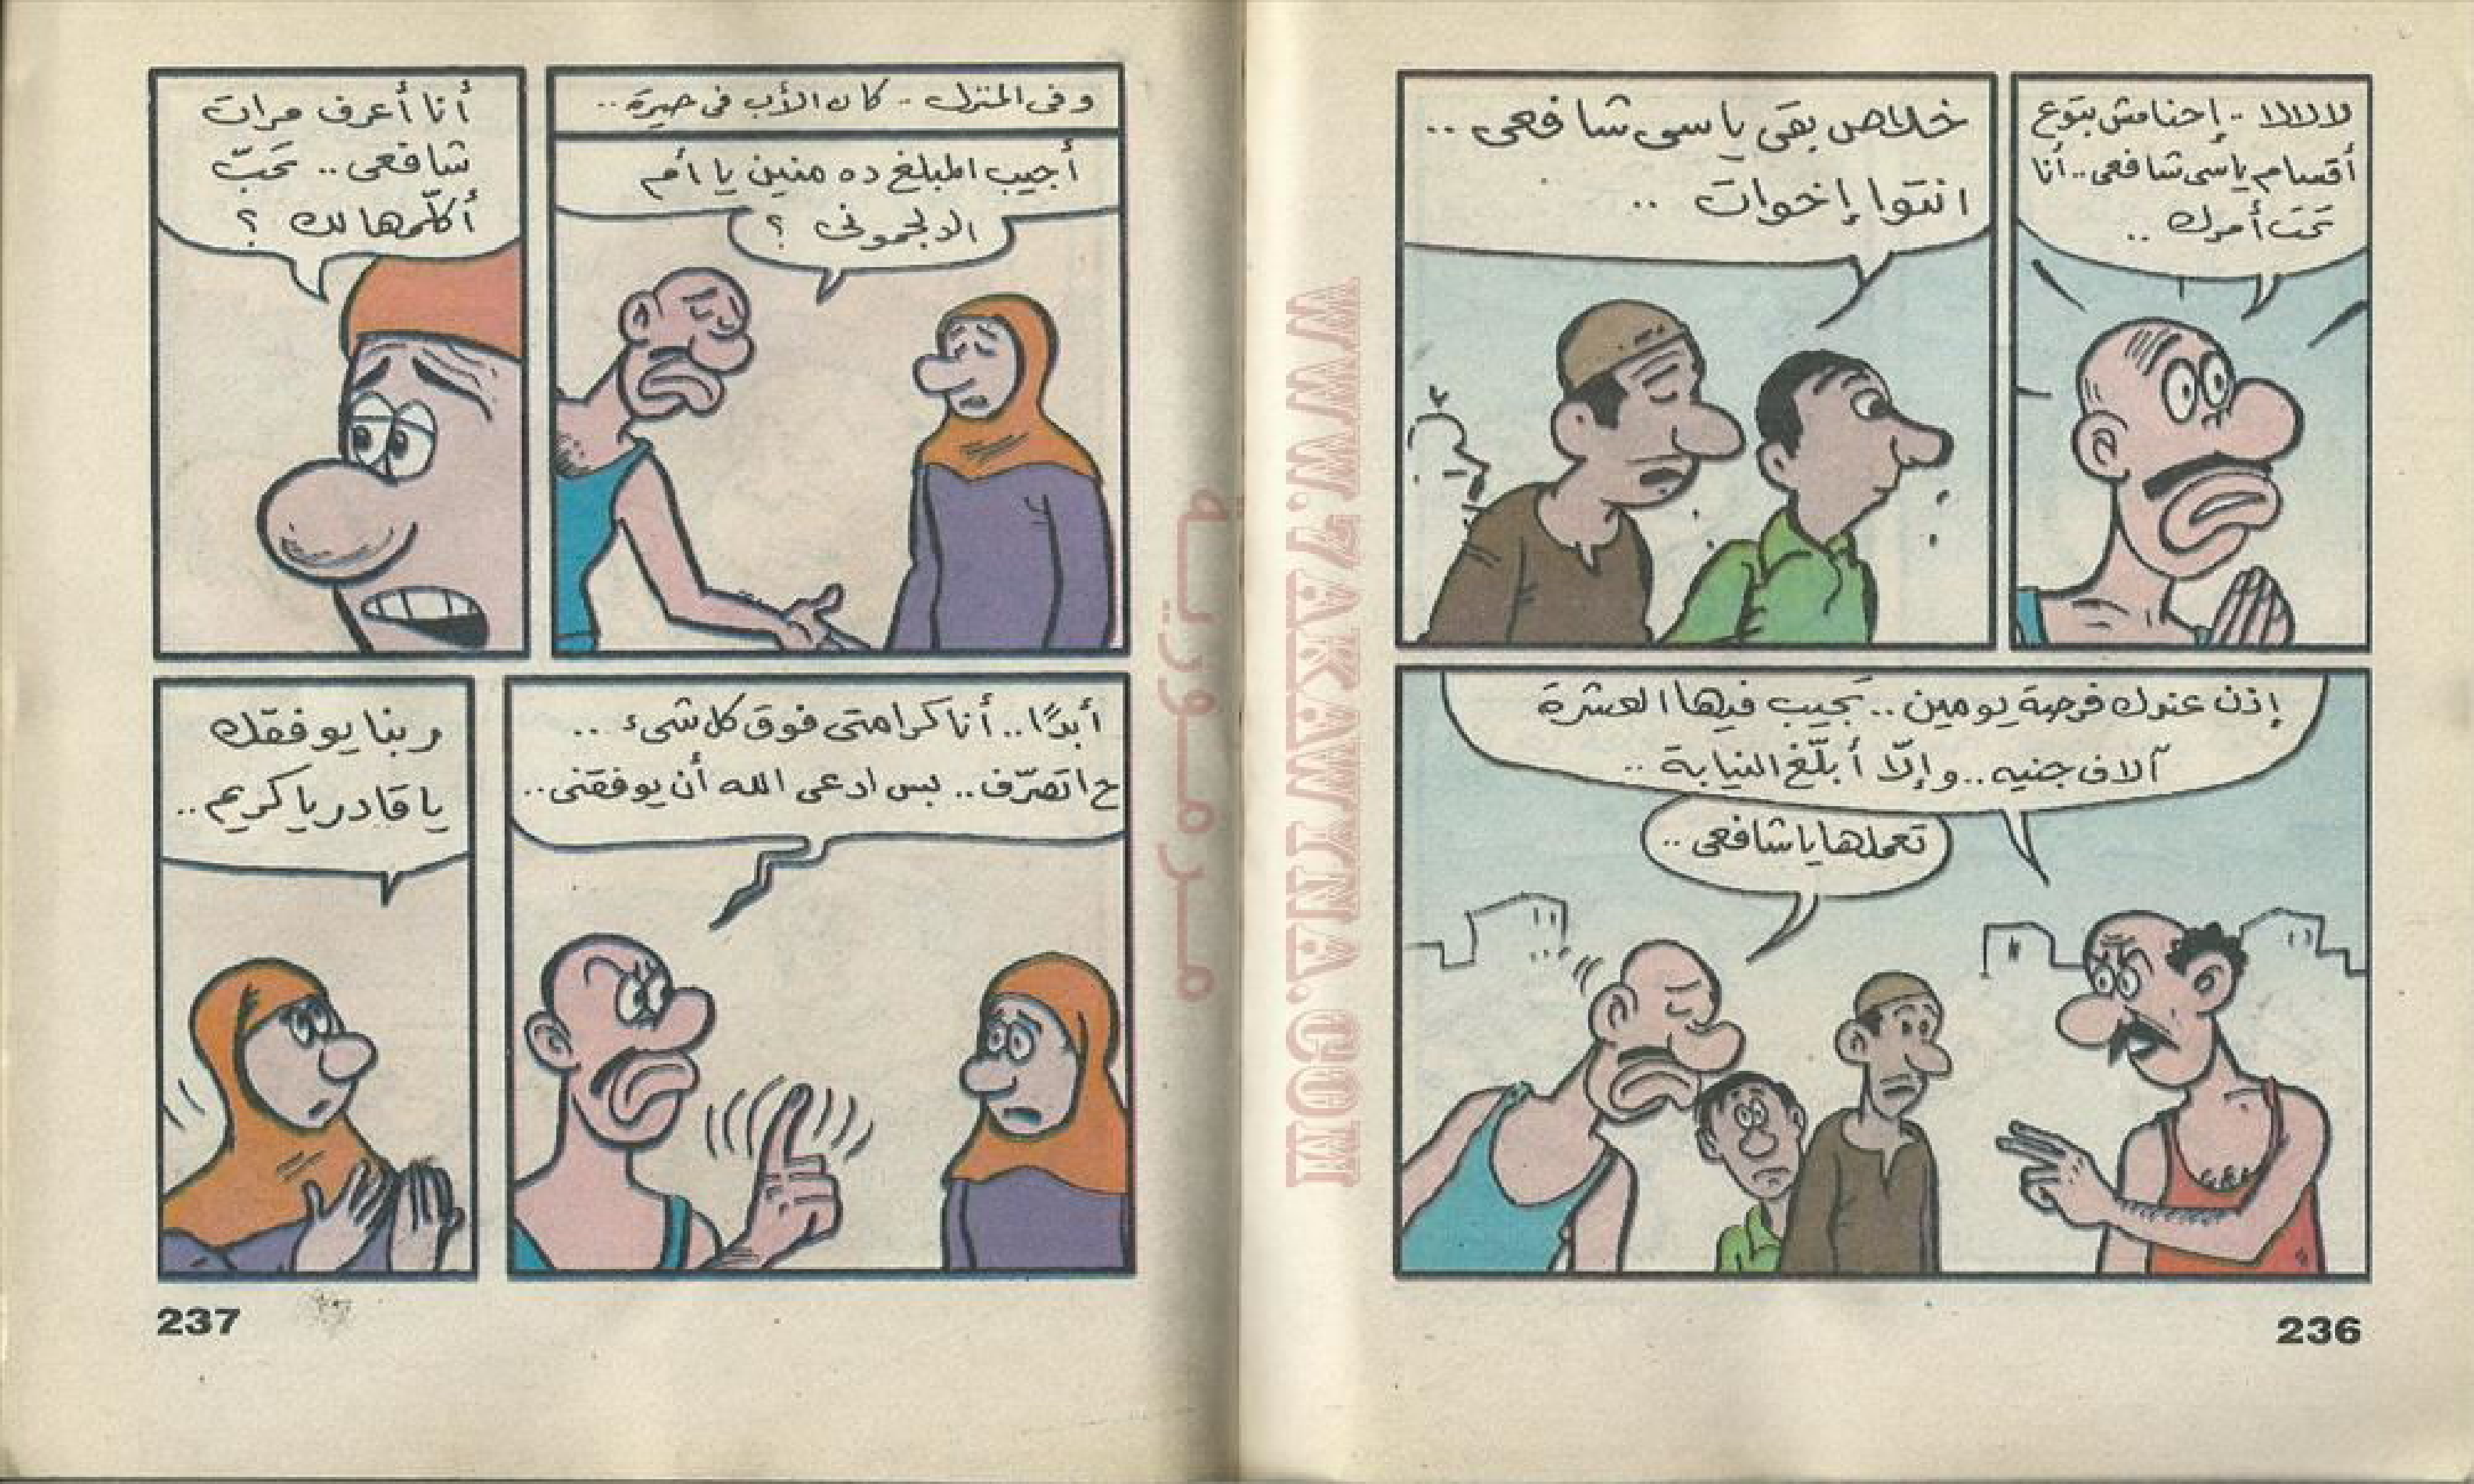 لالالا .. إحنا مش بتوع
أقسام ياسى شافعى .. أنا
تحت أمرك ..
خلاص بقى ياسى شافعى ..
انتوا إخوات ..
إذن عندك فرصة يومين .. تجيب فيها العشرة
آلاف جنيه .. وإلّا أبلّغ النيابة ..
تعملها ياشافعى ..
236
WWW.ZAKAWYINA.COM
مرمورية
وفى المنزل .. كان الأب فى حيرة ..
أجيب المبلغ ده منين يا أم
الدلجمونى ؟
أنا أعرف مرات
شافعى .. تحبّ
أكلّمهالك ؟
أبدًا .. أنا كرامتى فوق كل شىء ..
ح اتصرّف .. بس ادعى الله أن يوفقنى ..
ربنا يوفقك
ياقادر ياكريم ..
237